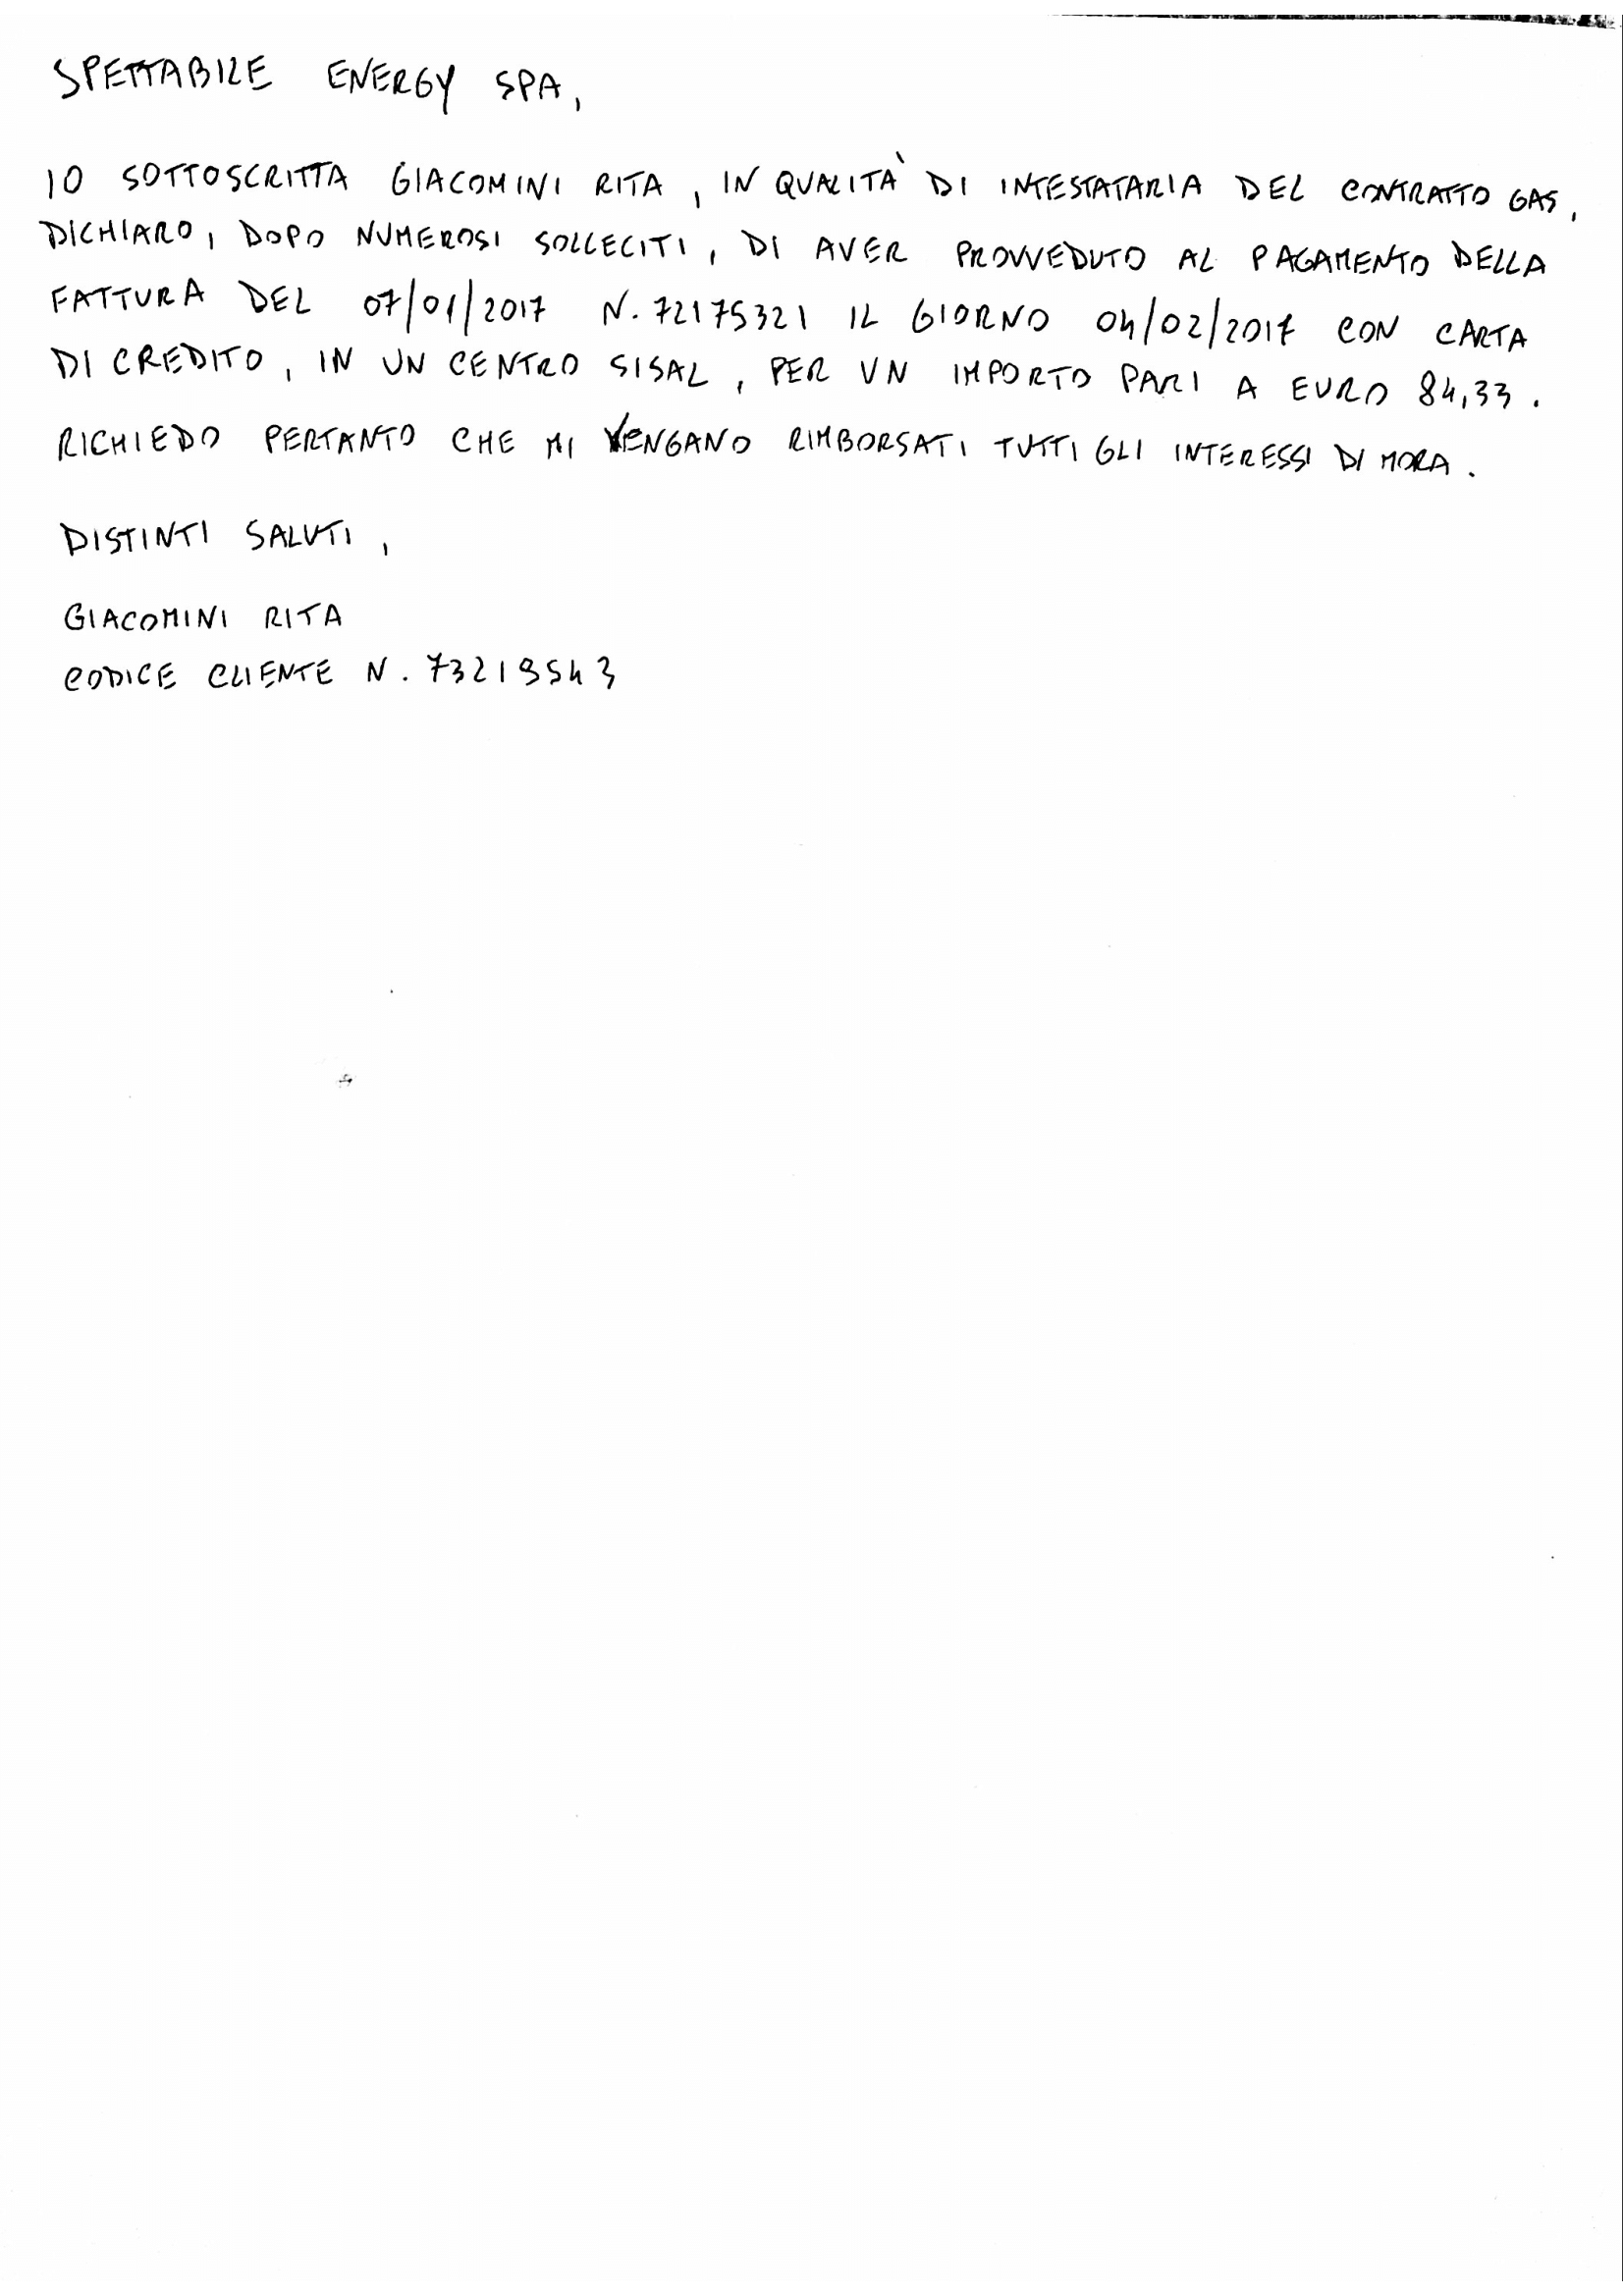 SPETTABILE ENERGY SPA,
IO SOTTOSCRITTA GIACOMINI RITA, IN QUALITÀ DI INTESTATARIA DEL CONTRATTO GAS,
DICHIARO, DOPO NUMEROSI SOLLECITI, DI AVER PROVVEDUTO AL PAGAMENTO DELLA
FATTURA DEL 07/01/2017 N. 72175321 IL GIORNO 04/02/2017 CON CARTA
DI CREDITO, IN UN CENTRO SISAL, PER UN IMPORTO PARI A EURO 84,33.
RICHIEDO PERTANTO CHE MI VENGANO RIMBORSATI TUTTI GLI INTERESSI DI MORA.
DISTINTI SALUTI,
GIACOMINI RITA
CODICE CLIENTE N. 73219543